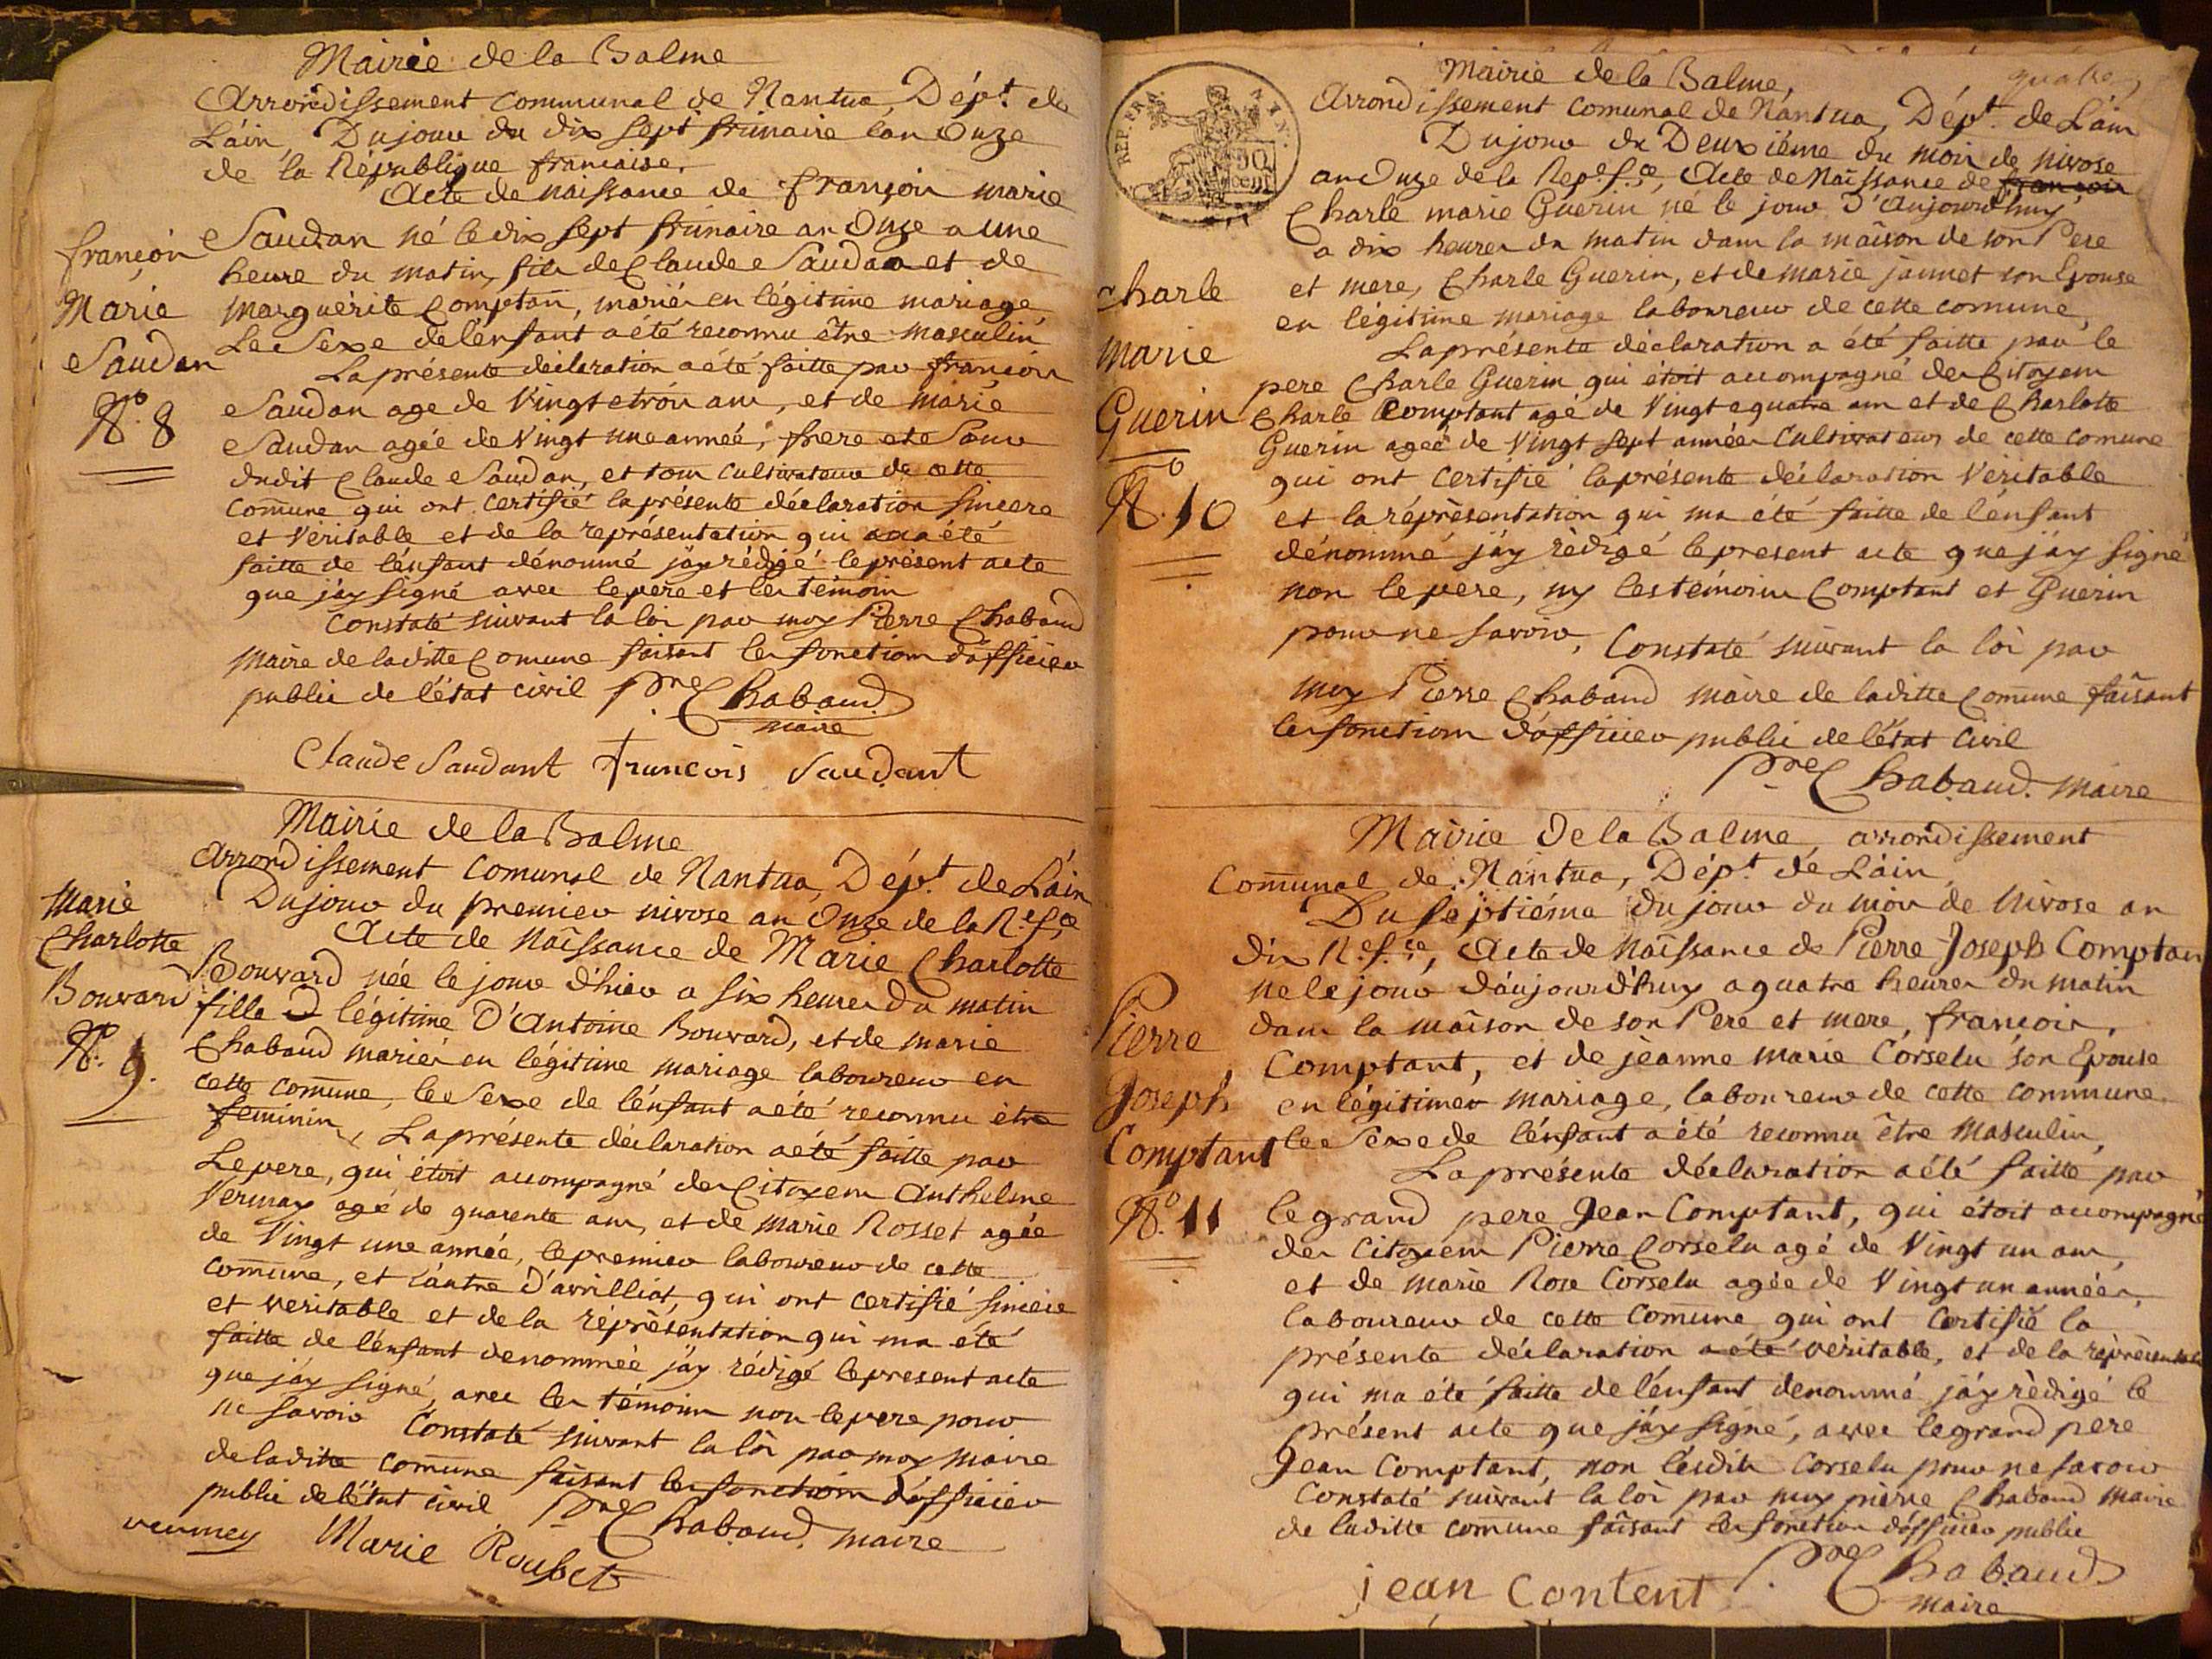 Mairie de la Balme
Arrondissement Communal de Nantua, Dép.t de
L'ain, Dujour du dix sept frimaire l'an Onze
de la République francaise.
Acte de naissance de françois marie
Saudan né le dix sept frimaire an Onze a une
heure du matin, fils de Claude Saudan et de
marguerite Comptan, mariés en légitime mariage,
Le Sexe de l'enfant a été reconnu être masculin
La présente déclaration a été faitte par françois
Saudan age de Vingt et trois ans, et de marie
Saudan agée de Vingt une année, frere et Soeur
dudit Claude Saudan, et tous Cultivateurs de cette
Comune qui ont certifié la présente déclaration Sincere
et Véritable et de la représentation qui a été
faitte de l'énfant dénommé j'ay rédigé le présent acte
que j'ay Signé avec le pere et les témoins
Constaté suivant la loi par moy Pierre Chabaud
maire de laditte Comune faisant les fonctions d'officier
public de l'état civil Pre Chabaud
maire
Claude Saudant francois Saudant
françois
Marie
Saudan
No. 8
Mairie de la Balme
Arrondissement Comunal de Nantua, Dép.t de L'ain
Dujour du premier nivose an Onze de la R.e f.ce
Acte de Naîssance de Marie Charlotte
Bouvard née le jour d'hier a six heures du matin
fille légitime D'Antoine Bouvard, et de marie
Chabaud mariés en légitime mariage laboureur en
cette comune, le Sexe de l'énfant a été reconnu être
feminin, La présente déclaration a été faitte par
Le pere, qui étoit accompagné des Citoyens Anthelme
Vermay agé de quarente ans, et de marie Rosset agée
de Vingt une année, le premier laboureur de cette
Comune, et l'autre d'avrilliat, qui ont certifié Sincere
et veritable et de la réprésentation qui ma été
faitte de l'énfant denommée j'ay rédigé le present acte
que j'ay Signé, avec les témoins non le pere pour
ne Savoir Constaté suivant la loi par moy maire
de laditte comune faisant les fonctions d'officier
public de l'état civil Pre Chabaud. maire
vermey Marie Rousset
Marie
Charlotte
Bouvard
No. 9.
quatre
REP. FRA.
50
cent
Mairie de la Balme,
Arrondissement Comunal de Nantua, Dép.t de L'ain
Dujour du Deuxiéme du mois de nivose
an Onze de la Rep.e f.ce, Acte de Naissance de françois
Charle marie Guerin né le jour D'Aujourd'huy
a dix heures du matin dans la maison de son Pere
et mere, Charle Guerin, et de marie jannet son Epouse
en légitime mariage laboureur de cette comune,
La présente déclaration a été faitte par le
pere Charle Guerin qui étoit accompagné des Citoyens
Charle Comptant agé de Vingt e quatre ans et de Charlotte
Guerin ageé de Vingt Sept années Cultivateurs de cette comune
qui ont Certifié la présente déclaration Véritable
et la réprésentation qui ma été faitte de l'énfant
dénommé j'ay rédigé le present acte que j'ay Signé
non le pere, ny les témoins Comptant et Guerin
pour ne Savoir, Constaté suivant la loi par
moy Pierre Chabaud maire de laditte Comune faisant
les fonctions d'officier public de l'état Civil
Pre Chabaud. maire
Charle
Marie
Guerin
No. 10
Mairie De la Balme, arrondissement
Communal de Nantua, Dép.t de L'ain,
Du Septiéme du jour du mois de Nivose an
dix R.e f.ce, Acte de Naîssance de Pierre Joseph Comptan
ne le jour d'aujourd'huy a quatre heures du matin
dans la maison de son Pere et mere, francois,
Comptant, et de jeanne marie Corselu son Epouse
en légitimer mariage, laboureur de cette commune
le Sexe de l'énfant a été reconnu être Masculin,
La présente déclaration a été faitte par
le grand pere Jean Comptant, qui étoit accompagné
des Citoyens Pierre Corselu agé de Vingt un ans,
et de marie Rose Corselu agée de Vingt un années,
laboureur de cette Comune qui ont Certifié la
présente déclaration a été véritable, et de la réprèsentation
qui ma été faitte de l'énfant denommé j'ay rèdigé le
présent acte que j'ay Signé, avec le grand pere
Jean Comptant, non lesdits Corselu pour ne Savoir
Constaté suivant la loi par moy pierre Chabaud maire
de laditte commune faîsant les fonction d'officier public
Pre Chabaud
jean content
maire
Pierre
Joseph
Comptant
No. 11